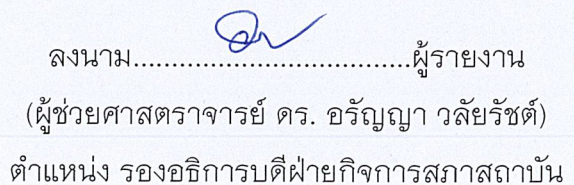 ลงนาม....................................ผู้รายงาน
(ผู้ช่วยศาสตราจารย์ ดร. อรัญญา วลัยรัชต์)
ตำแหน่ง รองอธิการบดีฝ่ายกิจการสภาสถาบัน